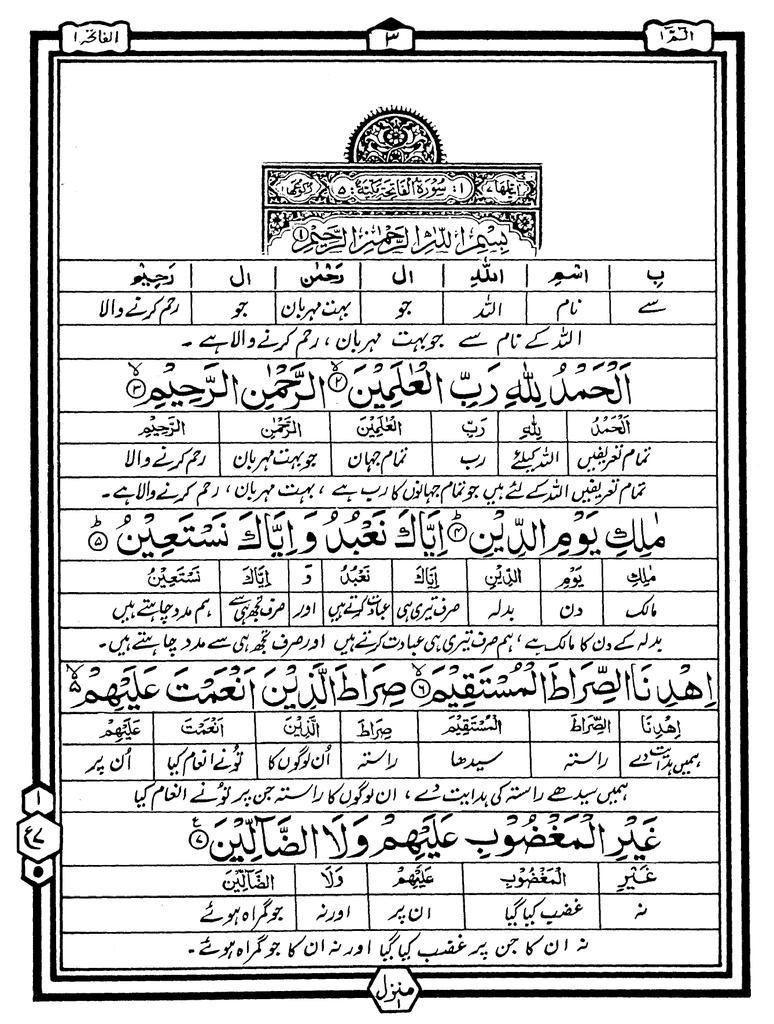 الٓمّٓ ۱ ۳ الفاتحۃ ۱
اٰیٰتُهَا ۷ ۱: سُوۡرَۃُ الۡفَاتِحَۃِ مَکِّیَّۃٌ: ۵ رُکُوۡعُهَا ۱
بِسۡمِ اللّٰهِ الرَّحۡمٰنِ الرَّحِیۡمِ ۱
بِ اسْمِ اللّٰهِ ال رَحْمٰن ال رَحِيْمِ
سے نام اللہ جو بہت مہربان جو رحم کرنے والا
اللہ کے نام سے جو بہت مہربان ، رحم کرنے والا ہے ۔
اَلۡحَمۡدُ لِلّٰهِ رَبِّ الۡعٰلَمِیۡنَ ۲ۙ الرَّحۡمٰنِ الرَّحِیۡمِ ۳ۙ
اَلۡحَمۡدُ لِلّٰهِ رَبِّ الۡعٰلَمِیۡنَ الرَّحۡمٰنِ الرَّحِیۡمِ
تمام تعریفیں اللہ کیلئے رب تمام جہان جو بہت مہربان رحم کرنے والا
تمام تعریفیں اللہ کے لئے ہیں جو تمام جہانوں کا رب ہے ، بہت مہربان ، رحم کرنے والا ہے۔
مٰلِكِ یَوۡمِ الدِّیۡنِ ۴ؕ اِیَّاكَ نَعۡبُدُ وَ اِیَّاكَ نَسۡتَعِیۡنُ ۵ؕ
مٰلِكِ یَوۡمِ الدِّیۡنِ اِیَّاكَ نَعۡبُدُ وَ اِیَّاكَ نَسۡتَعِیۡنُ
مالک دن بدلہ صرف تیری ہی عبادت کرتے ہیں اور صرف تجھ ہی سے ہم مدد چاہتے ہیں
بدلہ کے دن کا مالک ہے ، ہم صرف تیری ہی عبادت کرتے ہیں اور صرف تجھ ہی سے مدد چاہتے ہیں۔
اِهۡدِنَا الصِّرَاطَ الۡمُسۡتَقِیۡمَ ۶ۙ صِرَاطَ الَّذِیۡنَ اَنۡعَمۡتَ عَلَیۡهِمۡ ۵ۙ
اِهۡدِنَا الصِّرَاطَ الۡمُسۡتَقِیۡمَ صِرَاطَ الَّذِیۡنَ اَنۡعَمۡتَ عَلَیۡهِمۡ
ہمیں ہدایت دے راستہ سیدھا راستہ اُن لوگوں کا تُونے انعام کیا اُن پر
ہمیں سیدھے راستہ کی ہدایت دے ، ان لوگوں کا راستہ جن پر تُونے انعام کیا
۱
غَیۡرِ الۡمَغۡضُوۡبِ عَلَیۡهِمۡ وَلَا الضَّآلِّیۡنَ ۷
غَیۡرِ الۡمَغۡضُوۡبِ عَلَیۡهِمۡ وَلَا الضَّآلِّیۡنَ
نہ غضب کیا گیا ان پر اور نہ جو گمراہ ہوئے
نہ ان کا جن پر غضب کیا گیا اور نہ ان کا جو گمراہ ہوئے۔
منزل ۱